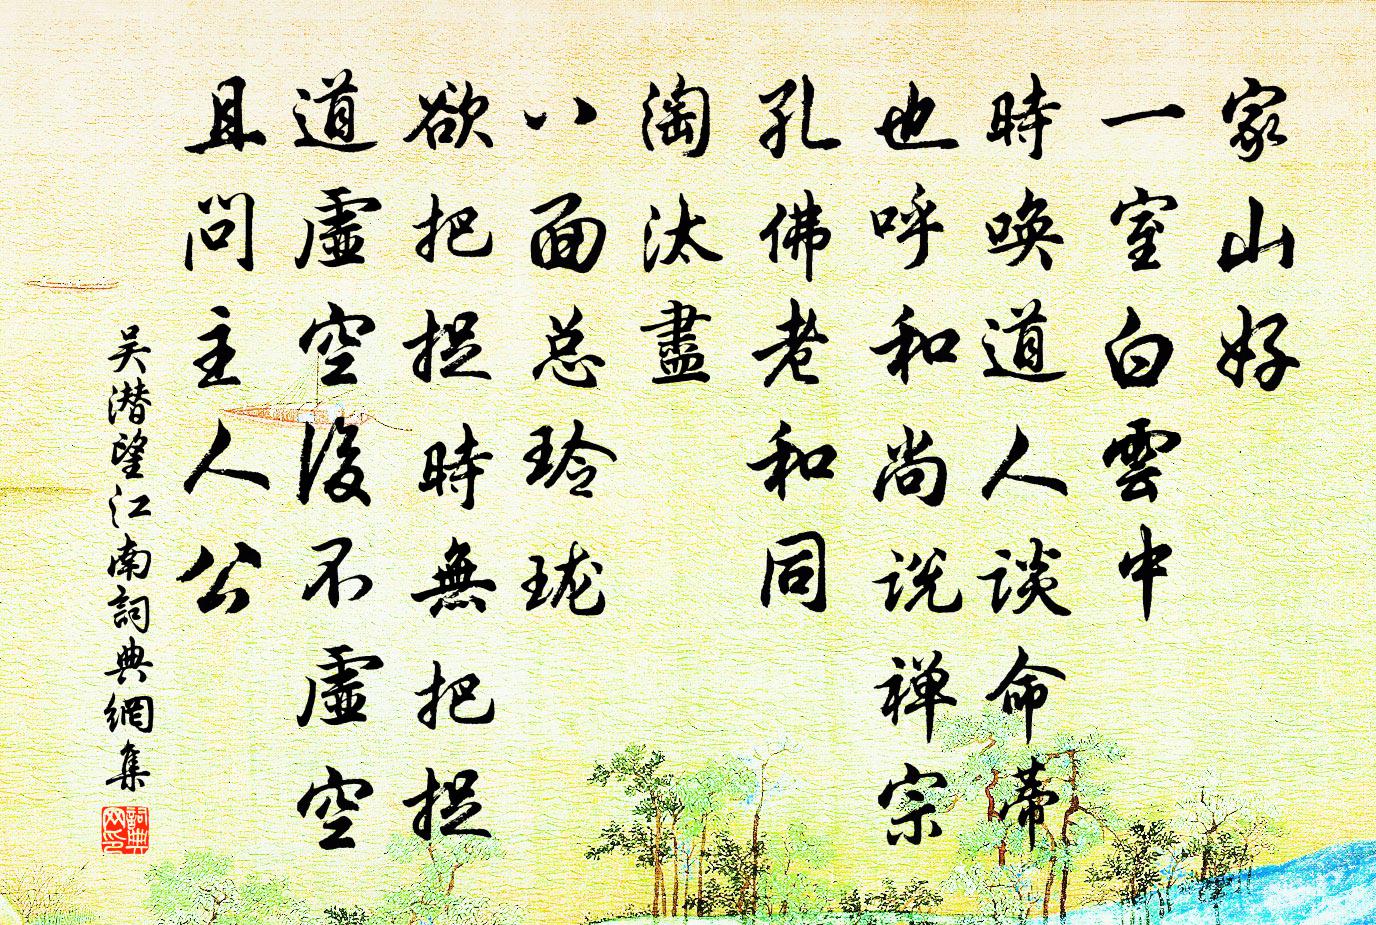 家山好
一室白雲中
時喚道人談命蒂
也呼和尚说禅宗
孔佛老和同
淘汰盡
八面总玲珑
欲把捉時無把捉
道虛空後不虛空
且問主人公
吴潜望江南詞典網集
詞典网印